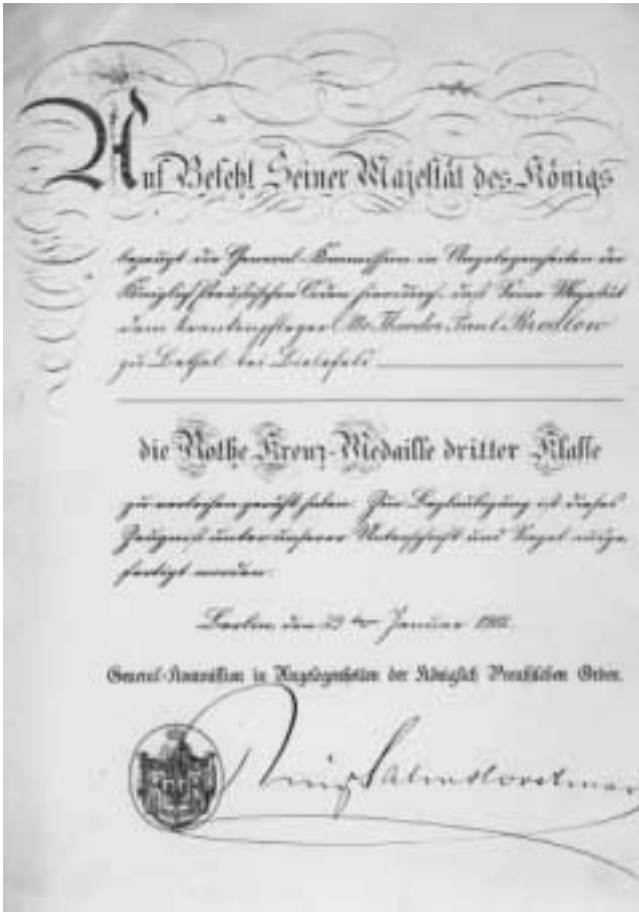 Auf Befehl Seiner Majestät des Königs
bezeugt die General-Kommission in Angelegenheiten der
Königlich Preußischen Orden hierdurch, daß Seine Majestät
dem Krankenpfleger Theodor Paul Bredlow
zu Bethel bei Bielefeld
die Rothe Kreuz-Medaille dritter Klasse
zu verleihen geruht haben. Zur Beglaubigung ist dieses
Zeugniß unter unserer Unterschrift und Siegel ausge
fertigt worden.
Berlin, den 23ten Januar
General-Kommission in Angelegenheiten der Königlich Preußischen Orden.